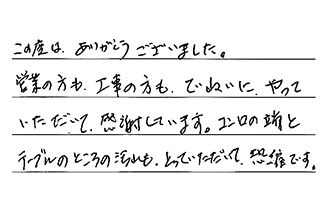 この度は、ありがとうございました。
営業の方も、工事の方も、ていねいに、やって
いただいて、感謝しています。コンロの端と
テーブルのところの汚れも、とっていただいて、恐縮です。